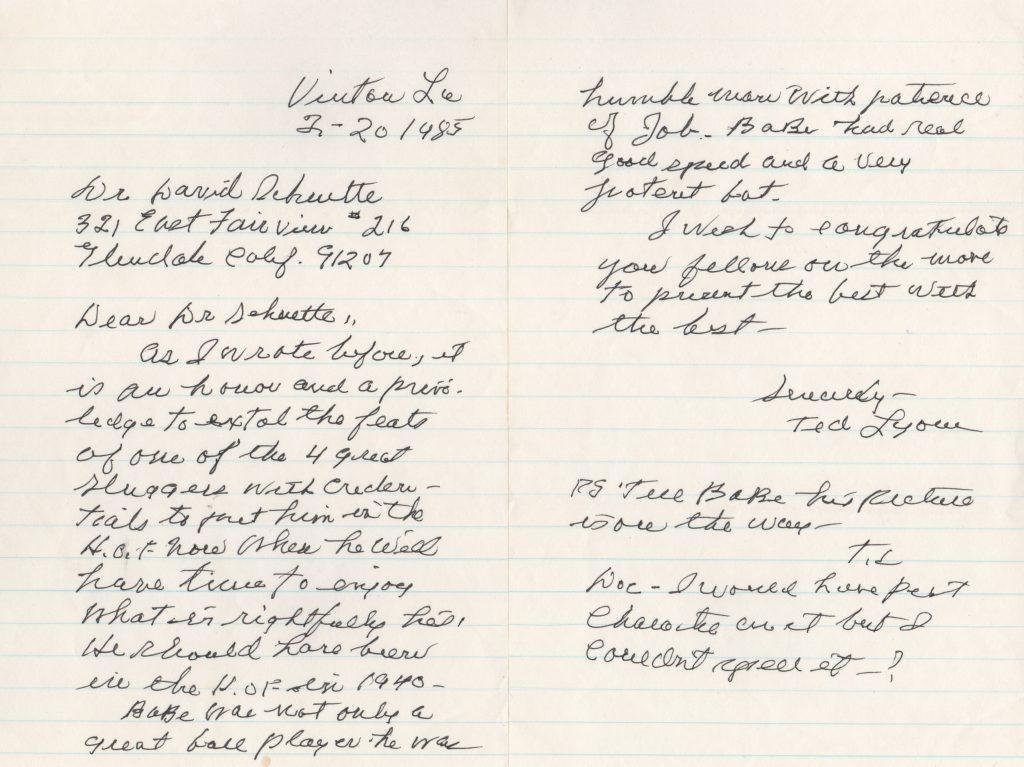 Vinton La
2-20 1985
Dr David Schuette
321 East Fairview #216
Glendale Calif. 91207
Dear Dr Schuette,,
As I wrote before, it
is an honor and a privi-
ledge to extol the feats
of one of the 4 great
sluggers with creden-
tials to put him in the
H.O.F now when he will
have time to enjoy
what is rightfully his.
He should have been
in the H.OF in 1940-
BaBe was not only a
great ball player he was
humble man with patience
of Job. BaBe had real
good speed and a very
potent bat.
I wish to congratulate
you fellows on the move
to present the best with
the best-
Sincerely-
Ted Lyons
PS Tell BaBe his picture
is on the way-
T.L
Doc - I would have put
on it but I
couldn't spell it -!